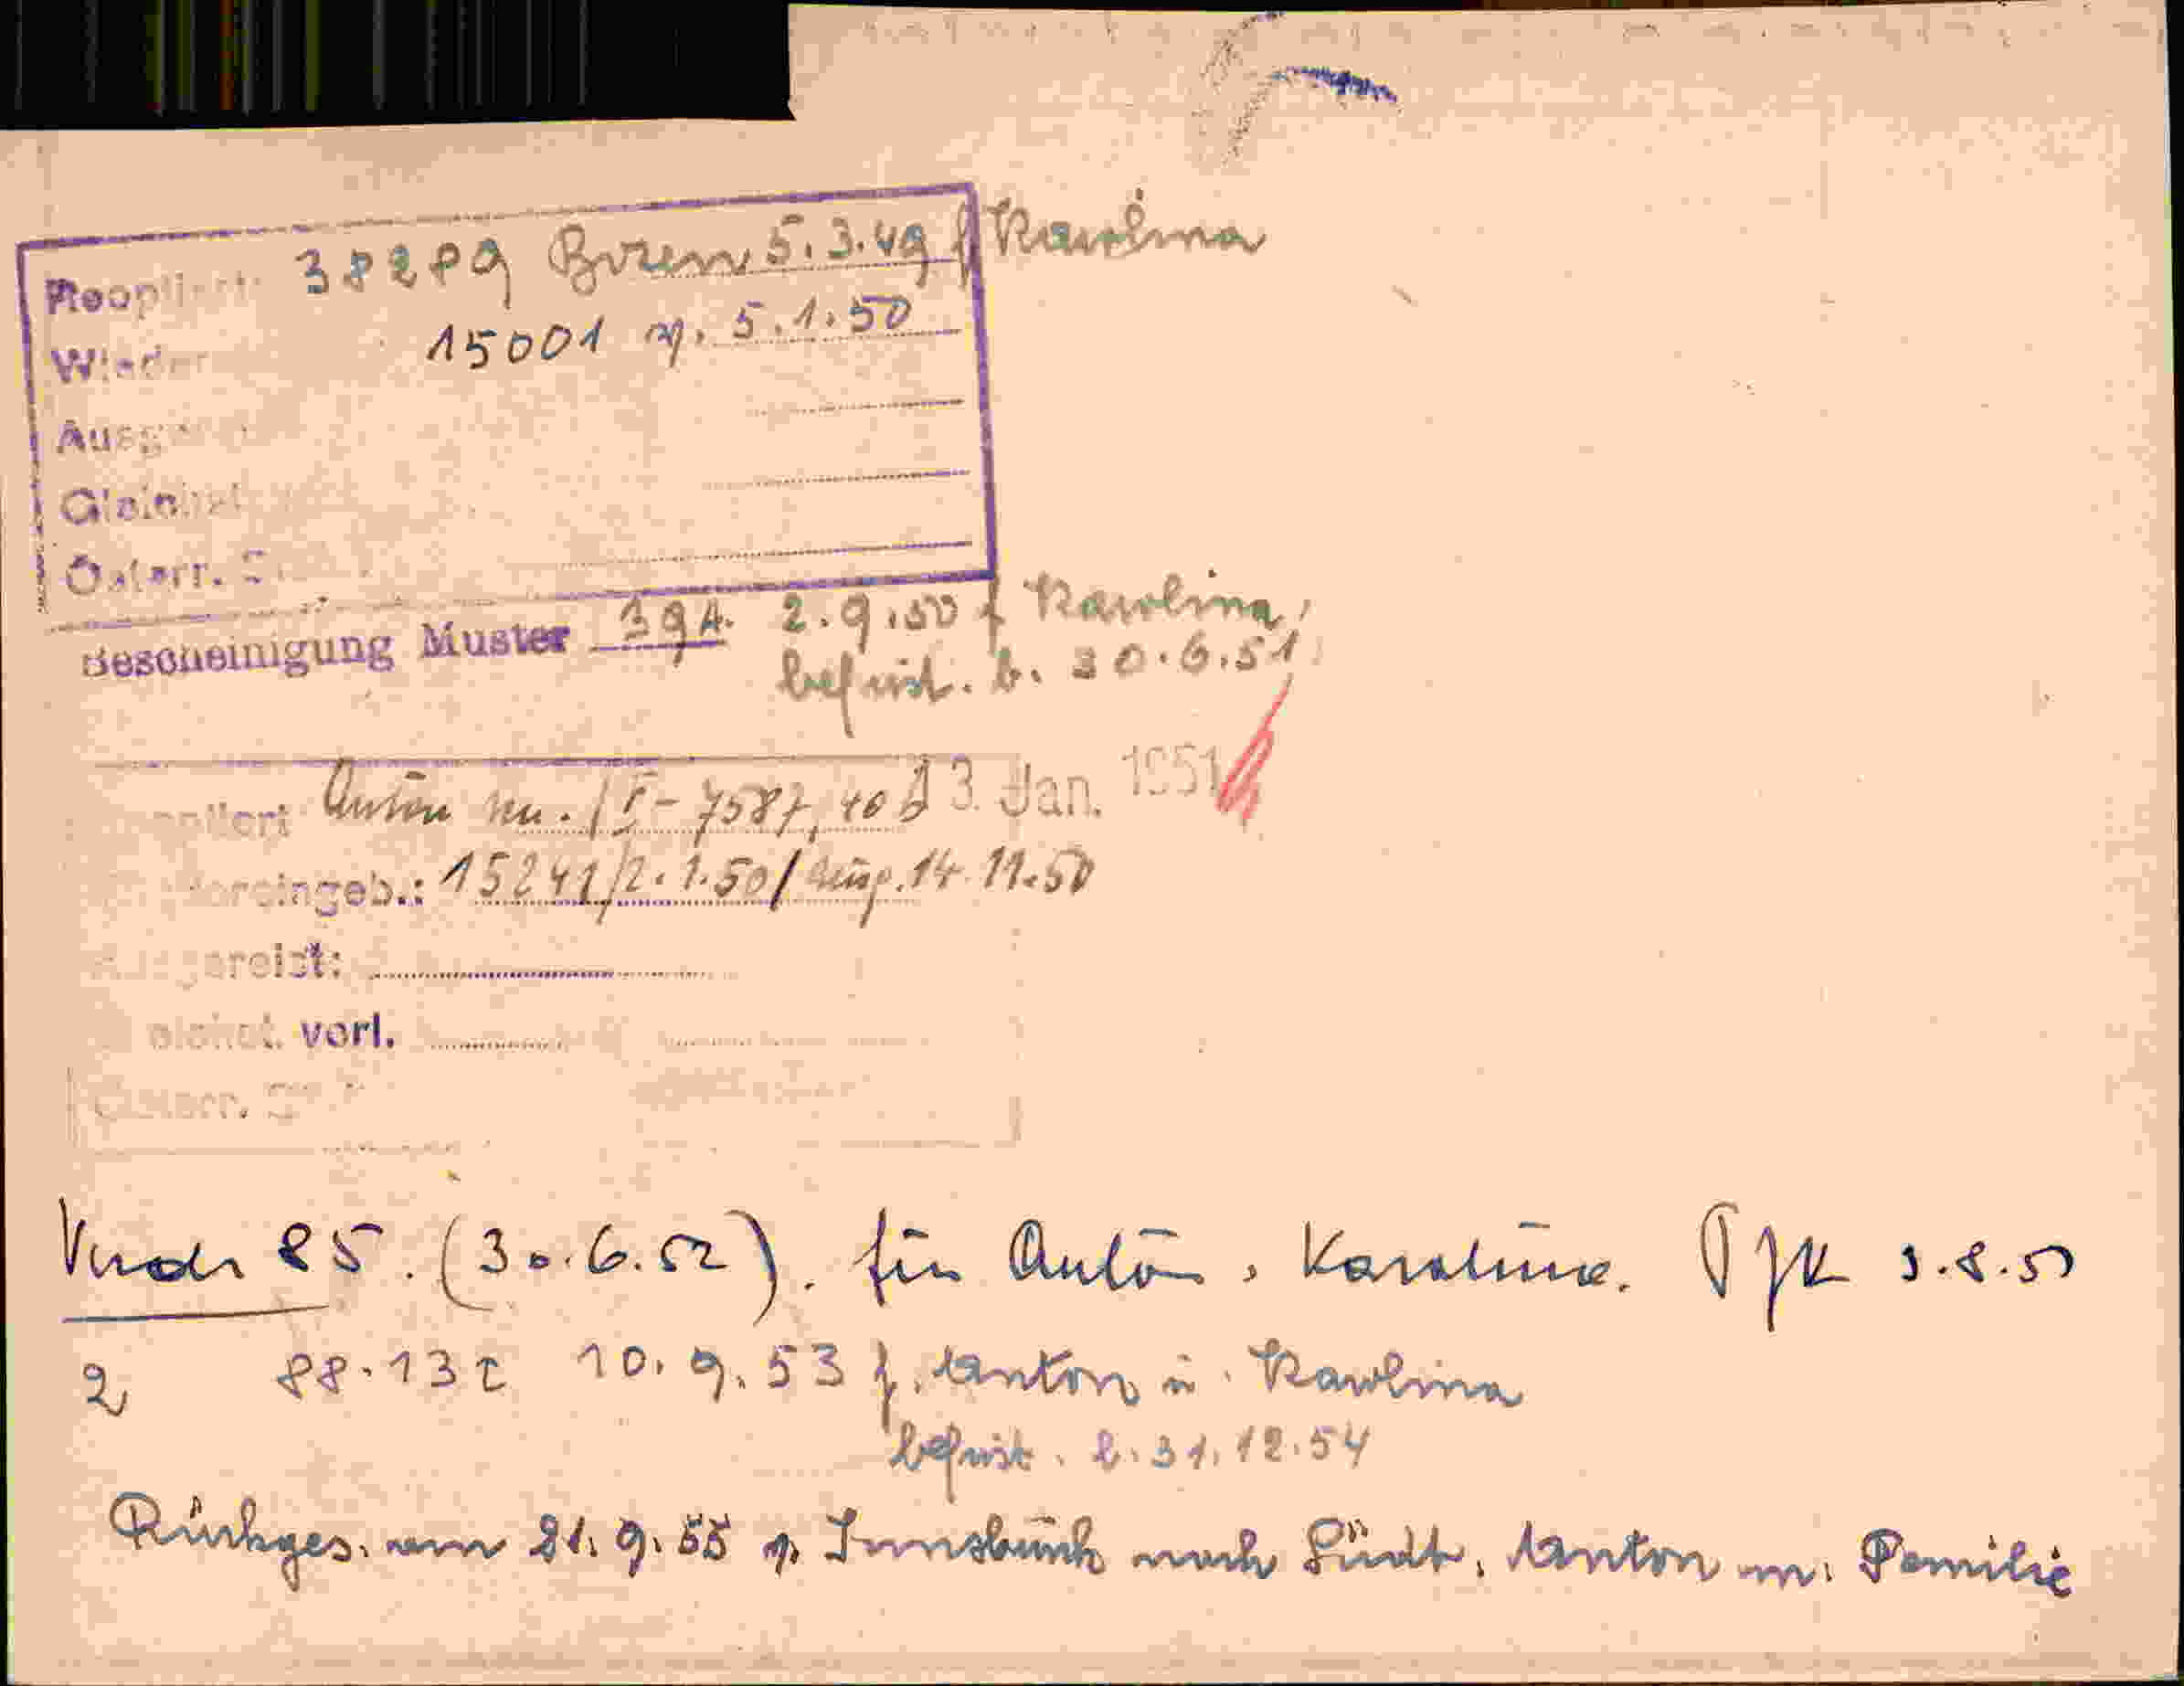 Reoptiert: 38289 Bozen 5.3.49 f Karolina
Wieder 15001 v. 5.1.50
Ausg
Gleichst
Österr. S
Bescheinigung Muster 394. 2.9.50 f Karolina,
befrist. b. 30.6.51
optiert Anton 13. Jan. 1951
ereingeb.: 15241/2.1.50/ 14.11.50
Ausgereist:
eichst. vorl.
Österr. St
85. (30.6.52). für Anton, Karoline. 3.8.51
2 88.132 10.9.53 f. Anton u. Karolina
befrist. b. 31.12.54
Rückges. am 21.9.55 v. Innsbruck nach Südt. Anton m. Familie